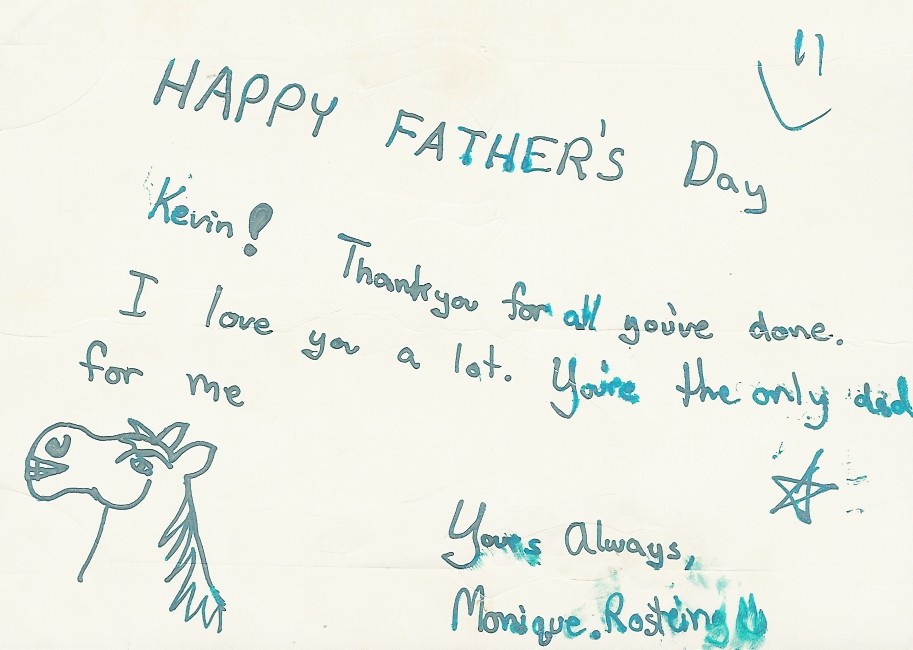 HAPPY FATHER'S Day
Kevin! Thankyou for all you've done.
I love you a lot. You're the only dad
for me
Yours Always,
Monique. Rosteing